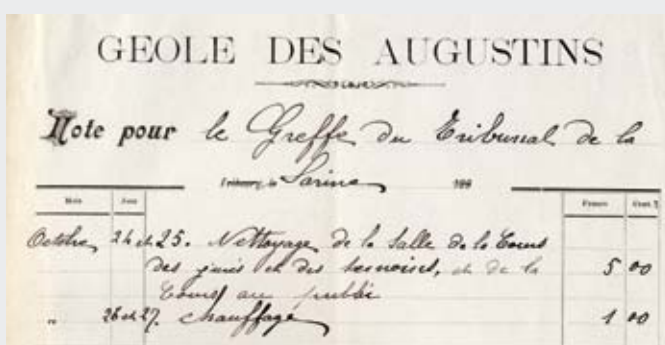 GEOLE DES AUGUSTINS
Note pour le Greffe du Tribunal de la
Fribourg, le Sarine 189
Mois Jour Francs Cent.
Octobre 24 et 25. Nettoyage de la Salle de la Cour
des jurés et des témoins, et de la 5 00
Cour au public
" 26 et 27. chauffage 1 00